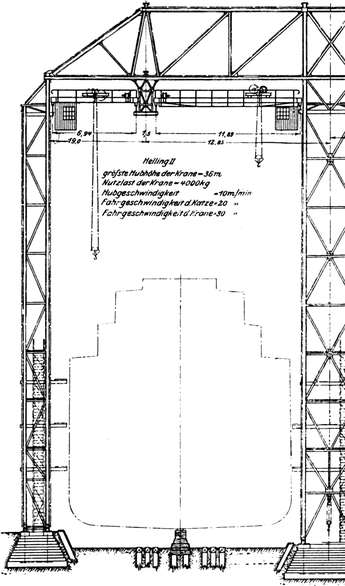 6,94 7,5 11,83
19,0 12,85
Helling II
größte Hubhöhe der Krane = 36m
Nutzlast der Krane = 4000kg
Hubgeschwindigkeit = 10m/min
Fahrgeschwindigkeit d. Katze = 20 "
Fahrgeschwindigkeit d. Krane = 30 "